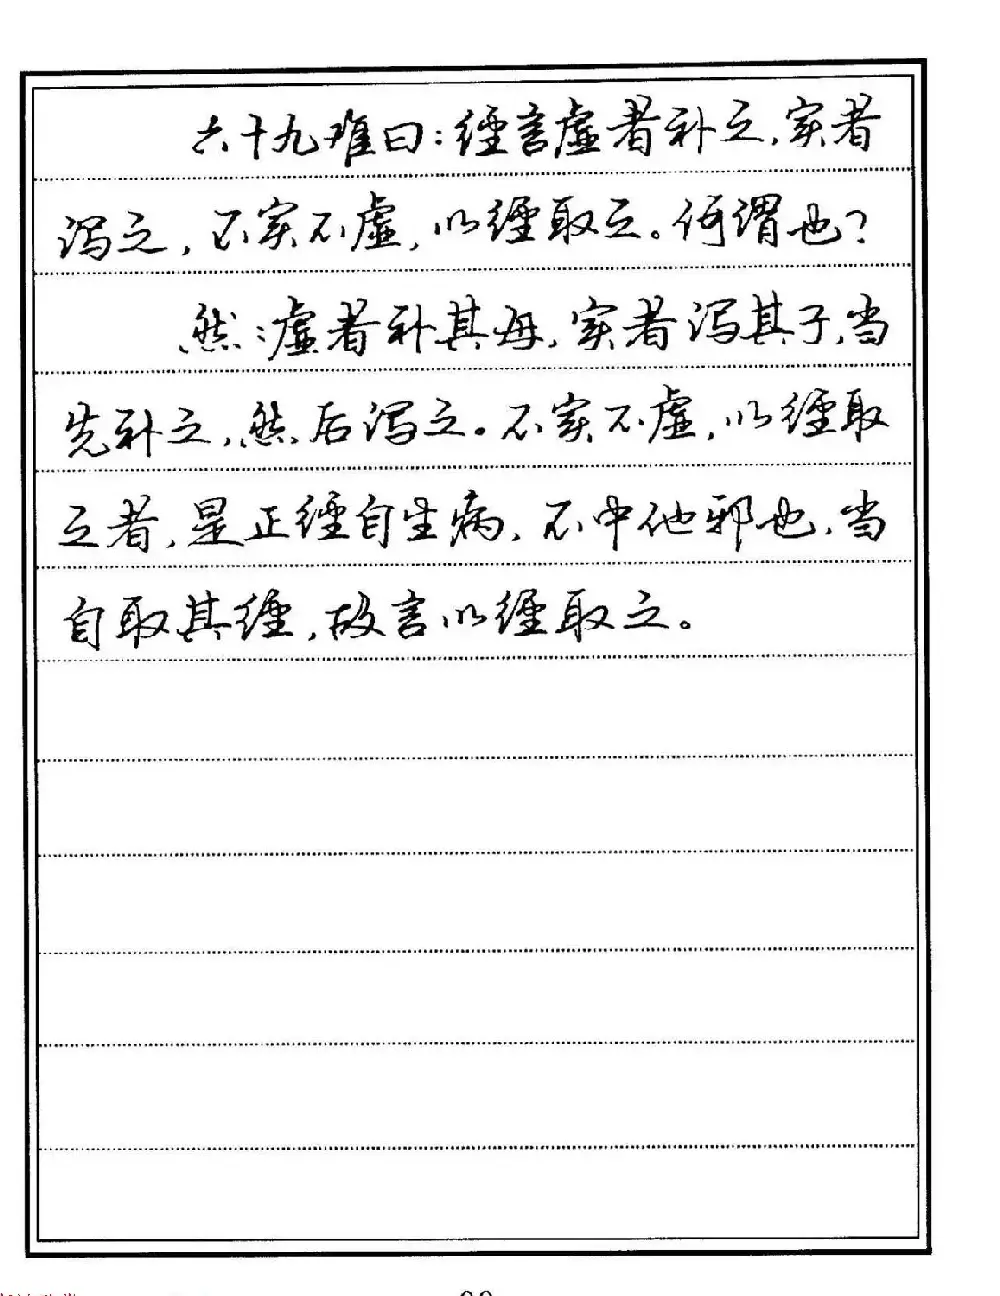 六十九难曰：经言虚者补之，实者
泻之，不实不虚，以经取之。何谓也？
然：虚者补其母，实者泻其子，当
先补之，然后泻之。不实不虚，以经取
之者，是正经自生病，不中他邪也，当
自取其经，故言以经取之。